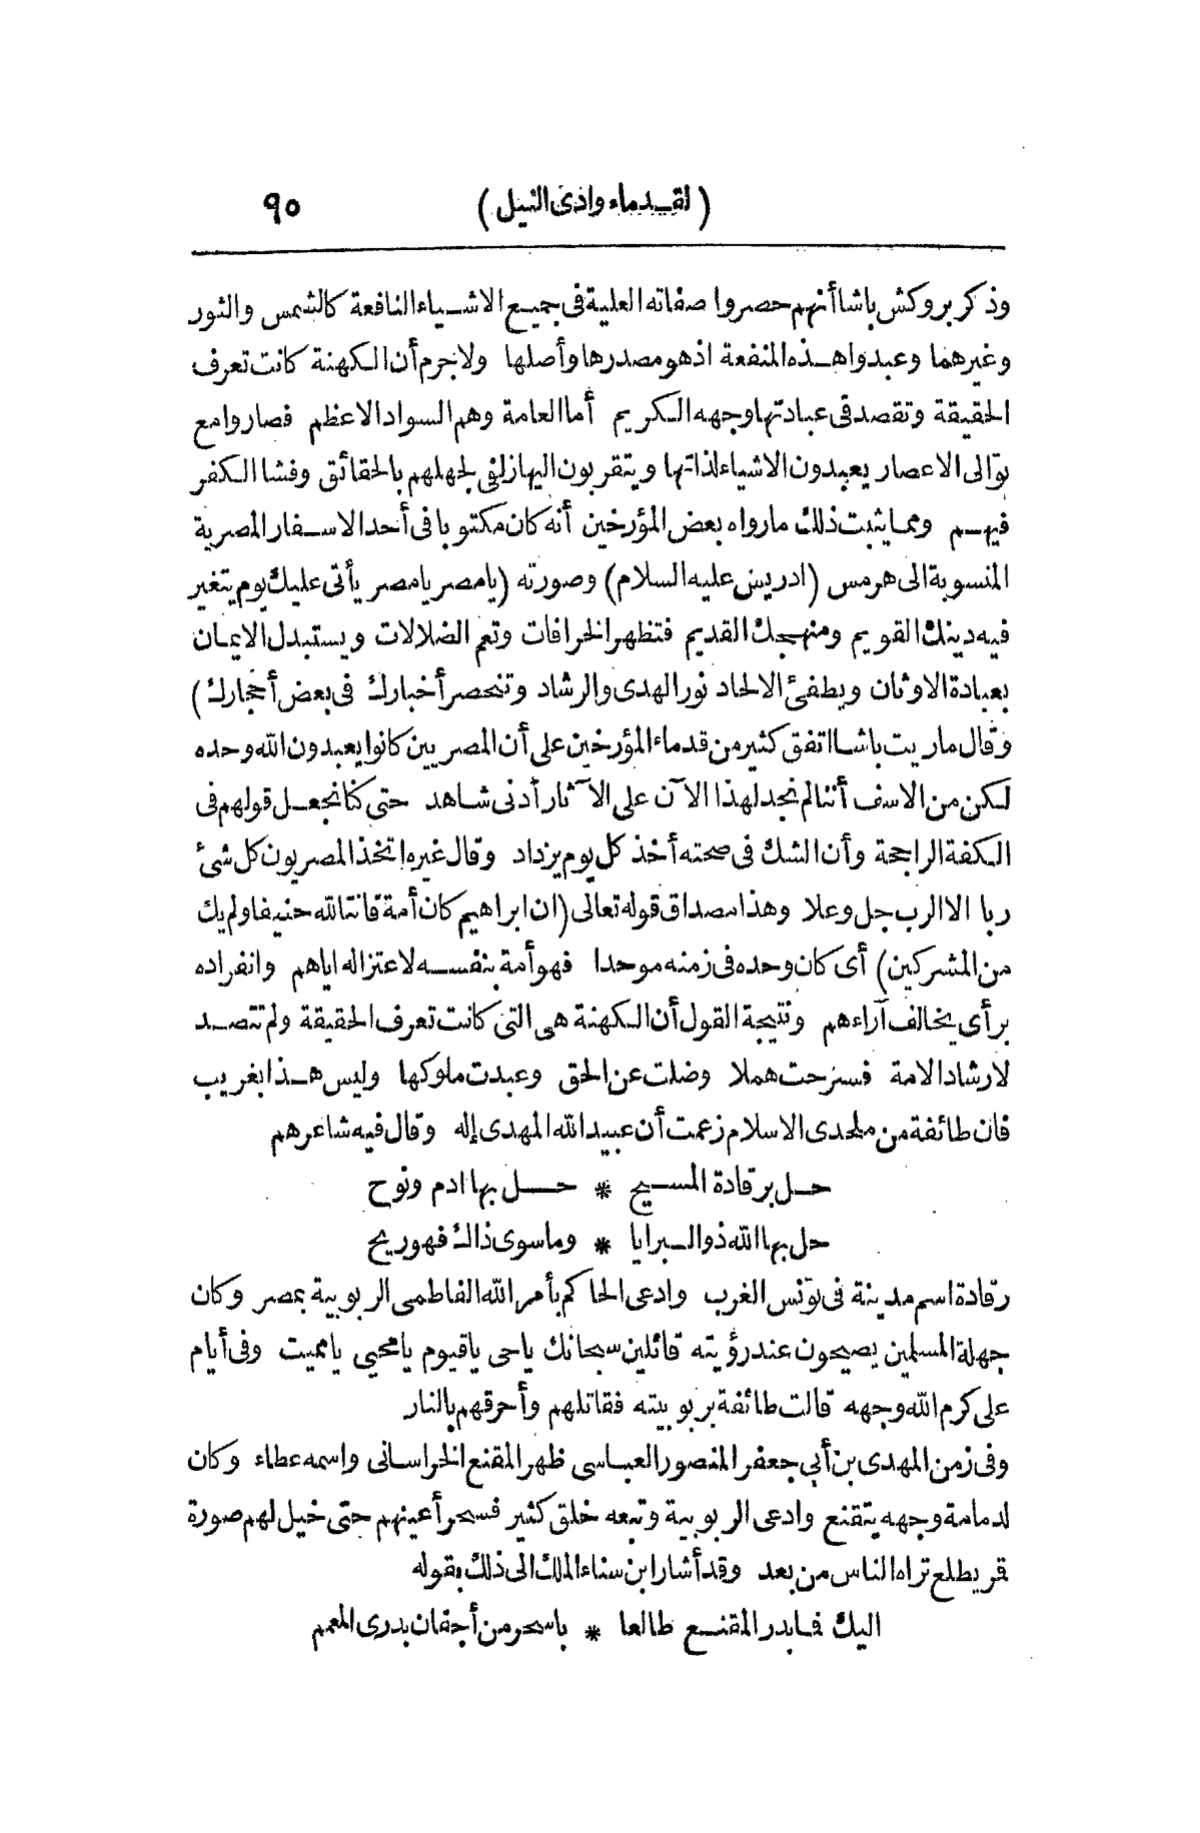 (لقدماء وادى النيل) ٩٥
وذكر بروكش باشا أنهم حصروا صفاته العلية فى جميع الاشياء النافعة كالشمس والثور
وغيرهما وعبدوا هذه المنفعة اذ هو مصدرها وأصلها ولاجرم أن الكهنة كانت تعرف
الحقيقة وتقصد فى عبادتها وجهه الكريم أما العامة وهم السواد الاعظم فصاروا مع
توالى الاعصار يعبدون الاشياء لذاتها ويتقربون اليها زلفى لجهلهم بالحقائق وفشا الكفر
فيهم ومما يثبت ذلك مارواه بعض المؤرخين أنه كان مكتوبا فى أحد الاسفار المصرية
المنسوبة الى هرمس (ادريس عليه السلام) وصورته (يا مصر يا مصر يأتى عليك يوم يتغير
فيه دينك القويم ومنهجك القديم فتظهر الخرافات وتعم الضلالات ويستبدل الايمان
بعبادة الاوثان ويطفئ الالحاد نور الهدى والرشاد وتنحصر أخبارك فى بعض أحجارك)
وقال ماريت باشا اتفق كثير من قدماء المؤرخين على أن المصريين كانوا يعبدون الله وحده
لكن من الاسف أننا لم نجد لهذا الآن على الآثار أدنى شاهد حتى كنا نجعل قولهم فى
الكفة الراجحة وأن الشك فى صحته أخذ كل يوم يزداد وقال غيره اتخذ المصريون كل شئ
ربا الا الرب جل وعلا وهذا مصداق قوله تعالى (ان ابراهيم كان أمة قانتا لله حنيفا ولم يك
من المشركين) أى كان وحده فى زمنه موحدا فهو أمة بنفسه لاعتزاله اياهم وانفراده
برأى يخالف آراءهم ونتيجة القول أن الكهنة هى التى كانت تعرف الحقيقة ولم تتصد
لارشاد الامة فسرحت هملا وضلت عن الحق وعبدت ملوكها وليس هذا بغريب
فان طائفة من ملحدى الاسلام زعمت أن عبيد الله المهدى إله وقال فيه شاعرهم
حل برقادة المسيح * حل بها ادم ونوح
حل بها الله ذو البرايا * وما سوى ذاك فهو ريح
رقادة اسم مدينة فى تونس الغرب وادعى الحاكم بأمر الله الفاطمى الربوبية بمصر وكان
جهلة المسلمين يصيحون عند رؤيته قائلين سبحانك ياحى ياقيوم يامحيي يامميت وفى أيام
على كرم الله وجهه قالت طائفة بربوبيته فقاتلهم وأحرقهم بالنار
وفى زمن المهدى بن أبي جعفر المنصور العباسى ظهر المقنع الخراسانى واسمه عطاء وكان
لدمامة وجهه يتقنع وادعى الربوبية وتبعه خلق كثير فسحر أعينهم حتى خيل لهم صورة
قمر يطلع تراه الناس من بعد وقد أشار ابن سناء الملك الى ذلك بقوله
اليك فما بدر المقنع طالعا * باسحر من أجفان بدرى المعمم